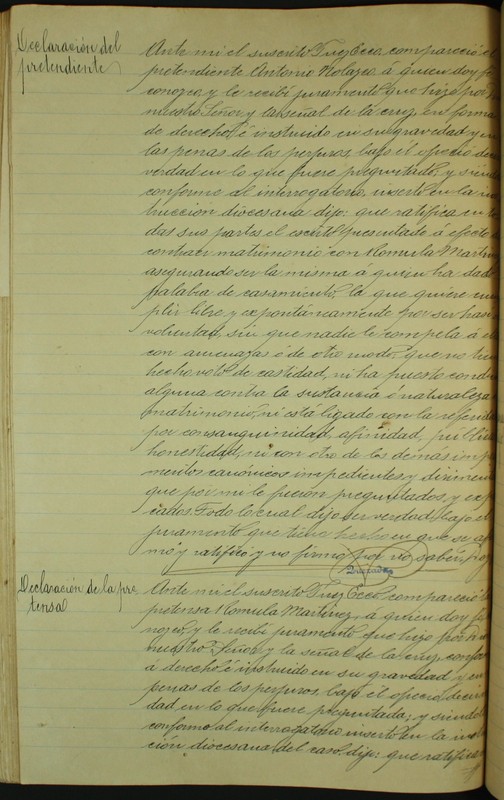 Declaración del
pretendiente
Ante mi el suscrito Juez Ecco, compareció el
pretendiente Antonio Nolazco, á quien doy fé
conozco, y le recibí juramento que hizo por
nuestro Señor y la señal de la cruz, en forma
de derecho, é instruido en su gravedad y en
las penas de los perjuros, bajo él ofreció de
verdad en lo que fuere preguntado, y siendo
conforme al interrogatorio, inserto en la ins
trucción diocesana dijo: que ratifica en to
das sus partes el escrito presentado á efecto
contraer matrimonio con Romula Martinez
asegurando ser la misma á quien ha dado
palabra de casamiento, la que quiere cum
plir libre y espontáneamente por ser
voluntad, sin que nadie le compela á ello
con amenazas ó de otro modo; que no
hecho voto de castidad, ni ha puesto condi
alguna contra la sustancia ó naturaleza
matrimonio, ni está ligado con la referida
por consanguinidad, afinidad, pública
honestidad, ni con otro de los demás impe
mentos canónicos impedientes y dirimen
que por mi le fueron preguntados, y
ciados. Todo lo cual dijo ser verdad, bajo el
juramento que tiene hecho en que se afir
mó y ratificó y no firmó por no saber, doy
Declaración de la pre
tensa
Ante mi el suscrito Juez Ecco. compareció la
pretensa Romula Martinez, a quien doy fé
conozco, y le recibí juramento que hizo por
nuestro Señor y la señal de la cruz, conforme
á derecho é instruida en su gravedad y en
penas de los perjuros, bajo él ofreció decir
dad en lo que fuere preguntada; y siendo
conforme al interrogatorio inserto en la ins
ción diocesana del caso, dijo: que ratifica